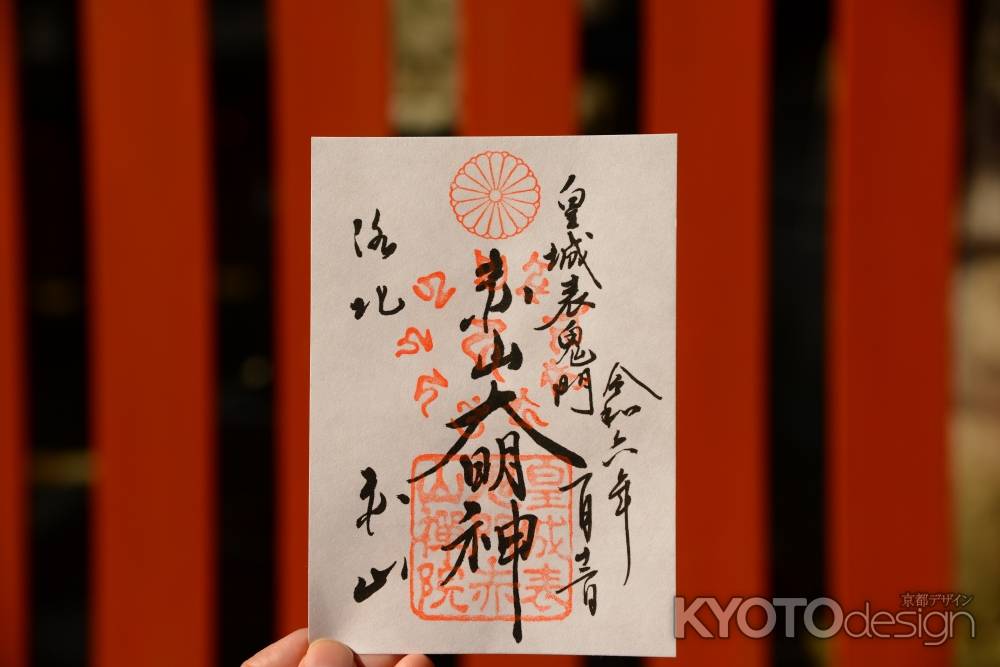 皇城表鬼門
令和六年
赤山大明神
洛北
赤山
皇城表
鬼門赤
山禅院
京都デザイン
KYOTOdesign